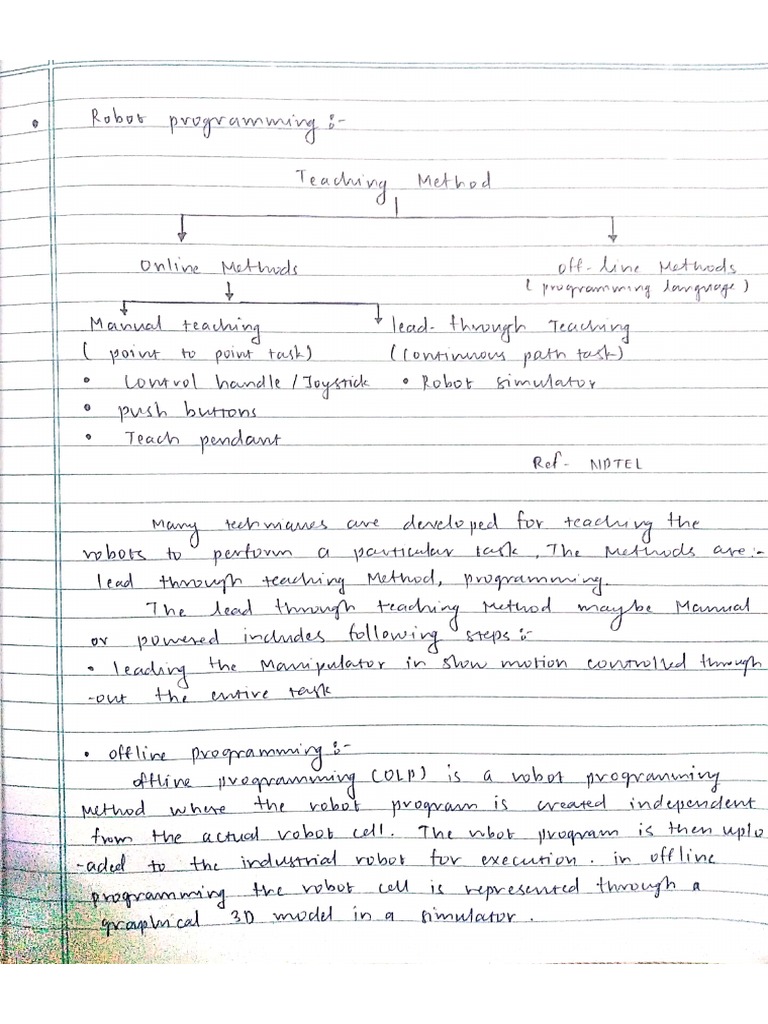 • Robot programming :-
Teaching Method
Online Methods off-line Methods
( programming language )
Manual teaching lead-through Teaching
( point to point task) (Continuous path task)
• Control handle/Joystick • Robot simulator
• push buttons
• Teach pendant
Ref- NPTEL
Many techniques are developed for teaching the
robots to perform a particular task. The Methods are:-
lead through teaching Method, programming.
The lead through teaching Method maybe Manual
or powered includes following steps :-
• leading the Manipulator in slow motion controlled through
-out the entire task
• offline programming :-
offline programming (OLP) is a robot programming
Method where the robot program is created independent
from the actual robot cell. The robot program is then uplo
-aded to the industrial robot for execution. in offline
programming the robot cell is represented through a
graphical 3D model in a simulator.